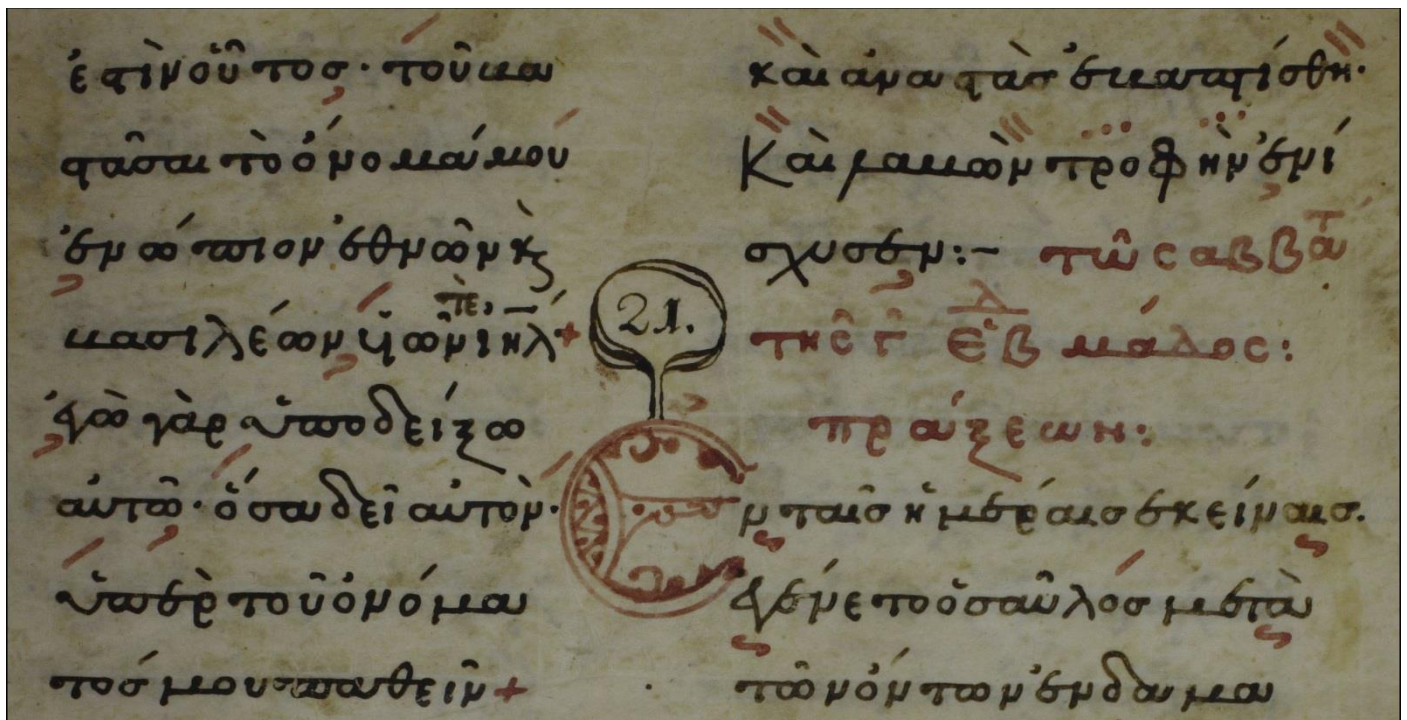 ἐστὶν οὗτος· τοῦ βα
στᾶσαι τὸ ὄνομά μου
ἐνώπιον ἐθνῶν κ̀
βασιλέων υἱῶν τὲ ιηλ +
ἐγὼ γὰρ ὑποδείξω
αὐτῶ· ὅσα δεῖ αὐτὸν·
ὑπὲρ τοῦ ὀνόμα
τός μου παθεῖν +
21.
καὶ ἀναστὰς ἐβαπτίσθη·
Καὶ λαβὼν τροφὴν ἐνί
σχυσεν:– τῶ σαββατ
τῆς γ ἑβδ μάδος:
πράξεων:
Ἐν ταῖς ἡμέραις ἐκείναις.
ἐγένετο ὁ σαῦλος μετὰ
τῶν ὄντων ἐν δαμα